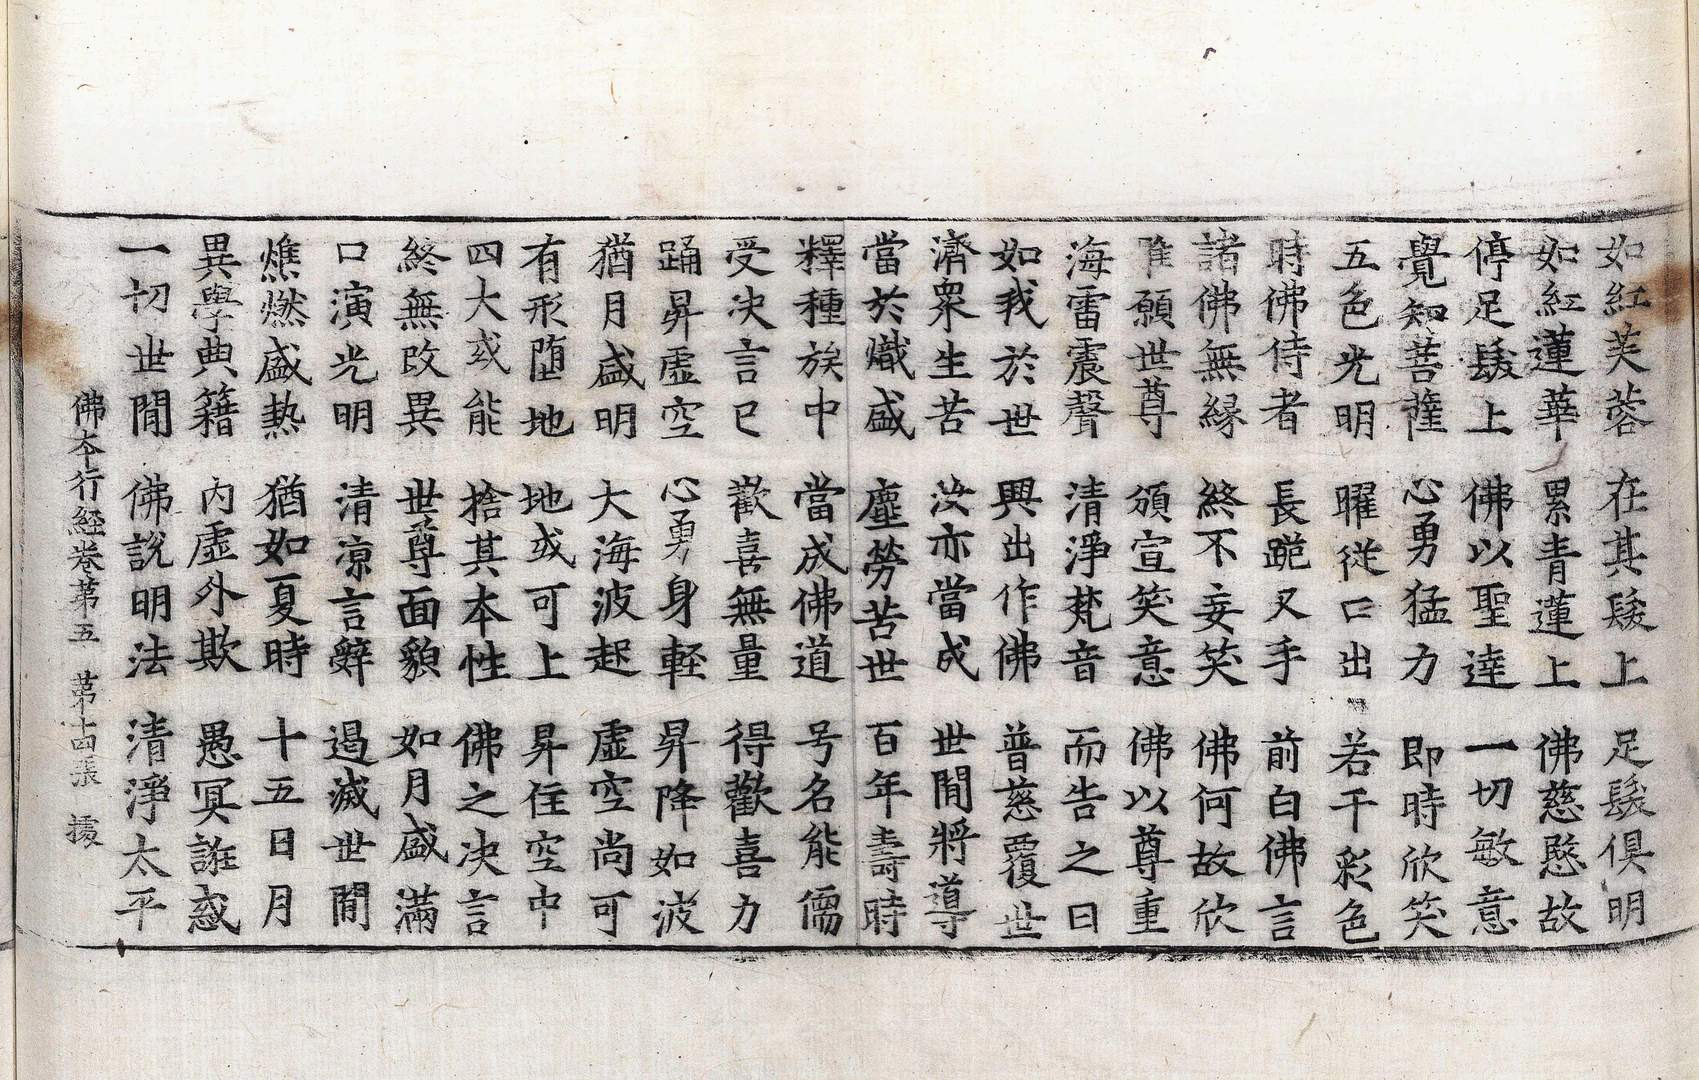 如紅芙蓉 在其髮上 足髮俱明
如紅蓮華 累青蓮上 佛慈愍故
停足髮上 佛以聖達 一切敏意
覺知菩薩 心勇猛力 即時欣笑
五色光明 曜從口出 若干彩色
時佛侍者 長跪叉手 前白佛言
諸佛無縁 終不妄笑 佛何故欣
唯願世尊 頒宣笑意 佛以尊重
海雷震聲 清淨梵音 而告之曰
如我於世 興出作佛 普慈覆世
濟衆生苦 汝亦當成 世閒將導
當於熾盛 塵勞苦世 百年壽時
釋種族中 當成佛道 号名能儒
受决言已 歡喜無量 得歡喜力
踊昇虛空 心勇身軽 昇降如波
猶月盛明 大海波起 虛空尚可
有形墮地 地或可上 昇住空中
四大或能 捨其本性 佛之决言
終無改異 世尊面貌 如月盛滿
口演光明 清涼言辭 遏滅世閒
燋燃盛熱 猶如夏時 十五日月
異學典籍 內虛外欺 愚冥誑惑
一切世閒 佛說明法 清淨太平
佛本行經卷第五 第十四張 攘